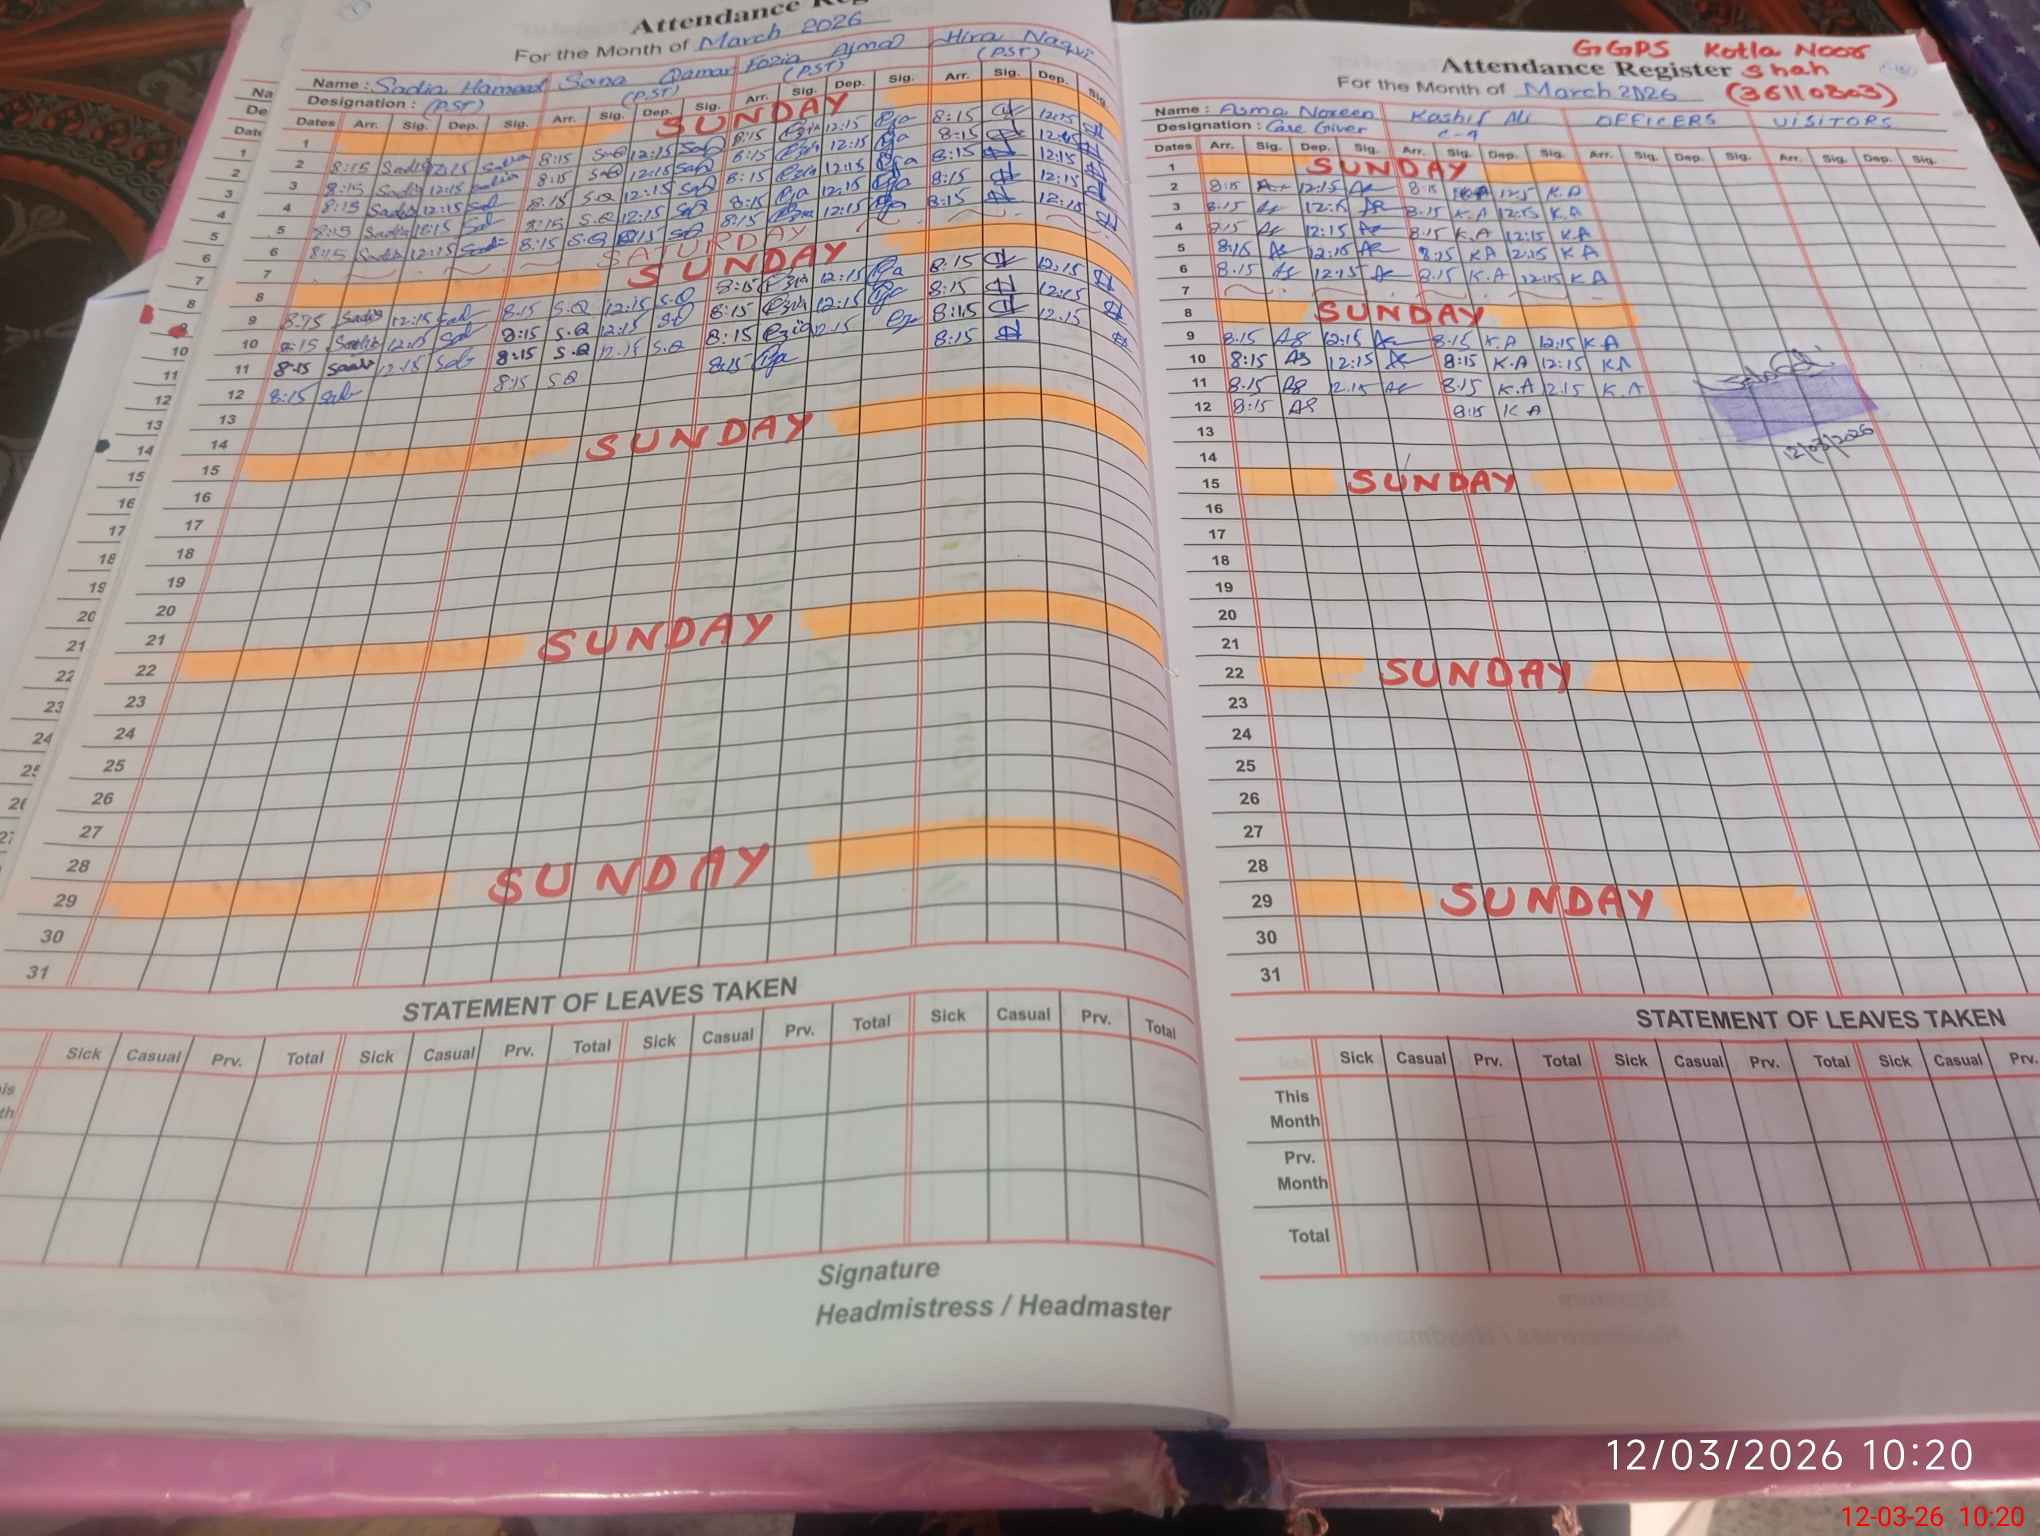 Attendance Reg
For the Month of March 2026
Name : Sadia Hameed Sana Qamar Fozia Ajmal Hira Naqvi
Designation : (PST) (PST) (PST) (PST)
Dates Arr. Sig. Dep. Sig. Arr. Sig. Dep. Sig. Arr. Sig. Dep. Sig. Arr. Sig. Dep. Sig.
1 SUNDAY
2 8:15 Sadia 12:15 Sadia 8:15 S.Q 12:15 8:15 12:15 8:15 12:15
3 8:15 Sadia 12:15 8:15 S.Q 12:15 8:15 12:15 8:15
4 8:15 Sadia 12:15 8:15 S.Q 12:15 8:15 12:15 8:15 12:15
5 8:15 Sadia 8:15 S.Q 12:15 8:15 12:15 8:15 12:15
6 8:15 Sadia 12:15 8:15 S.Q 8:15 12:15 8:15 12:15
7 SATURDAY
8 SUNDAY
9 8:15 Sadia 12:15 8:15 S.Q 12:15 S.Q 8:15 12:15 8:15 12:15
10 8:15 Sadia 12:15 8:15 S.Q 12:15 8:15 12:15 8:15 12:15
11 8:15 Sadia 12:15 8:15 S.Q 12:15 S.Q 8:15 12:15 8:15 12:15
12 8:15 8:15 S.Q 8:15 8:15
13
14
15 SUNDAY
16
17
18
19
20
21
22 SUNDAY
23
24
25
26
27
28
29 SUNDAY
30
31
STATEMENT OF LEAVES TAKEN
Sick Casual Prv. Total Sick Casual Prv. Total Sick Casual Prv. Total Sick Casual Prv. Total
Signature
Headmistress / Headmaster
GGPS Kotla Noor
Attendance Register Shah
For the Month of March 2026 (36110803)
Name : Asma Noreen Kashif Ali OFFICERS VISITORS
Designation : Care Giver C-4
Dates Arr. Sig. Dep. Sig. Arr. Sig. Dep. Sig. Arr. Sig. Dep. Sig. Arr. Sig. Dep. Sig.
1 SUNDAY
2 8:15 12:15 8:15 K.A K.A
3 8:15 12:15 8:15 K.A 12:15 K.A
4 8:15 12:15 8:15 K.A 12:15 K.A
5 8:15 12:15 8:15 K.A 12:15 K.A
6 8:15 12:15 8:15 K.A 12:15 K.A
7
8 SUNDAY
9 8:15 12:15 8:15 K.A 12:15 K.A
10 8:15 12:15 8:15 K.A 12:15 K.A
11 8:15 12:15 8:15 K.A 12:15 K.A
12 8:15 8:15 K.A
12/03/2026
13
14
15 SUNDAY
16
17
18
19
20
21
22 SUNDAY
23
24
25
26
27
28
29 SUNDAY
30
31
STATEMENT OF LEAVES TAKEN
Sick Casual Prv. Total Sick Casual Prv. Total Sick Casual Prv.
This
Month
Prv.
Month
Total
12/03/2026 10:20
12-03-26 10:20